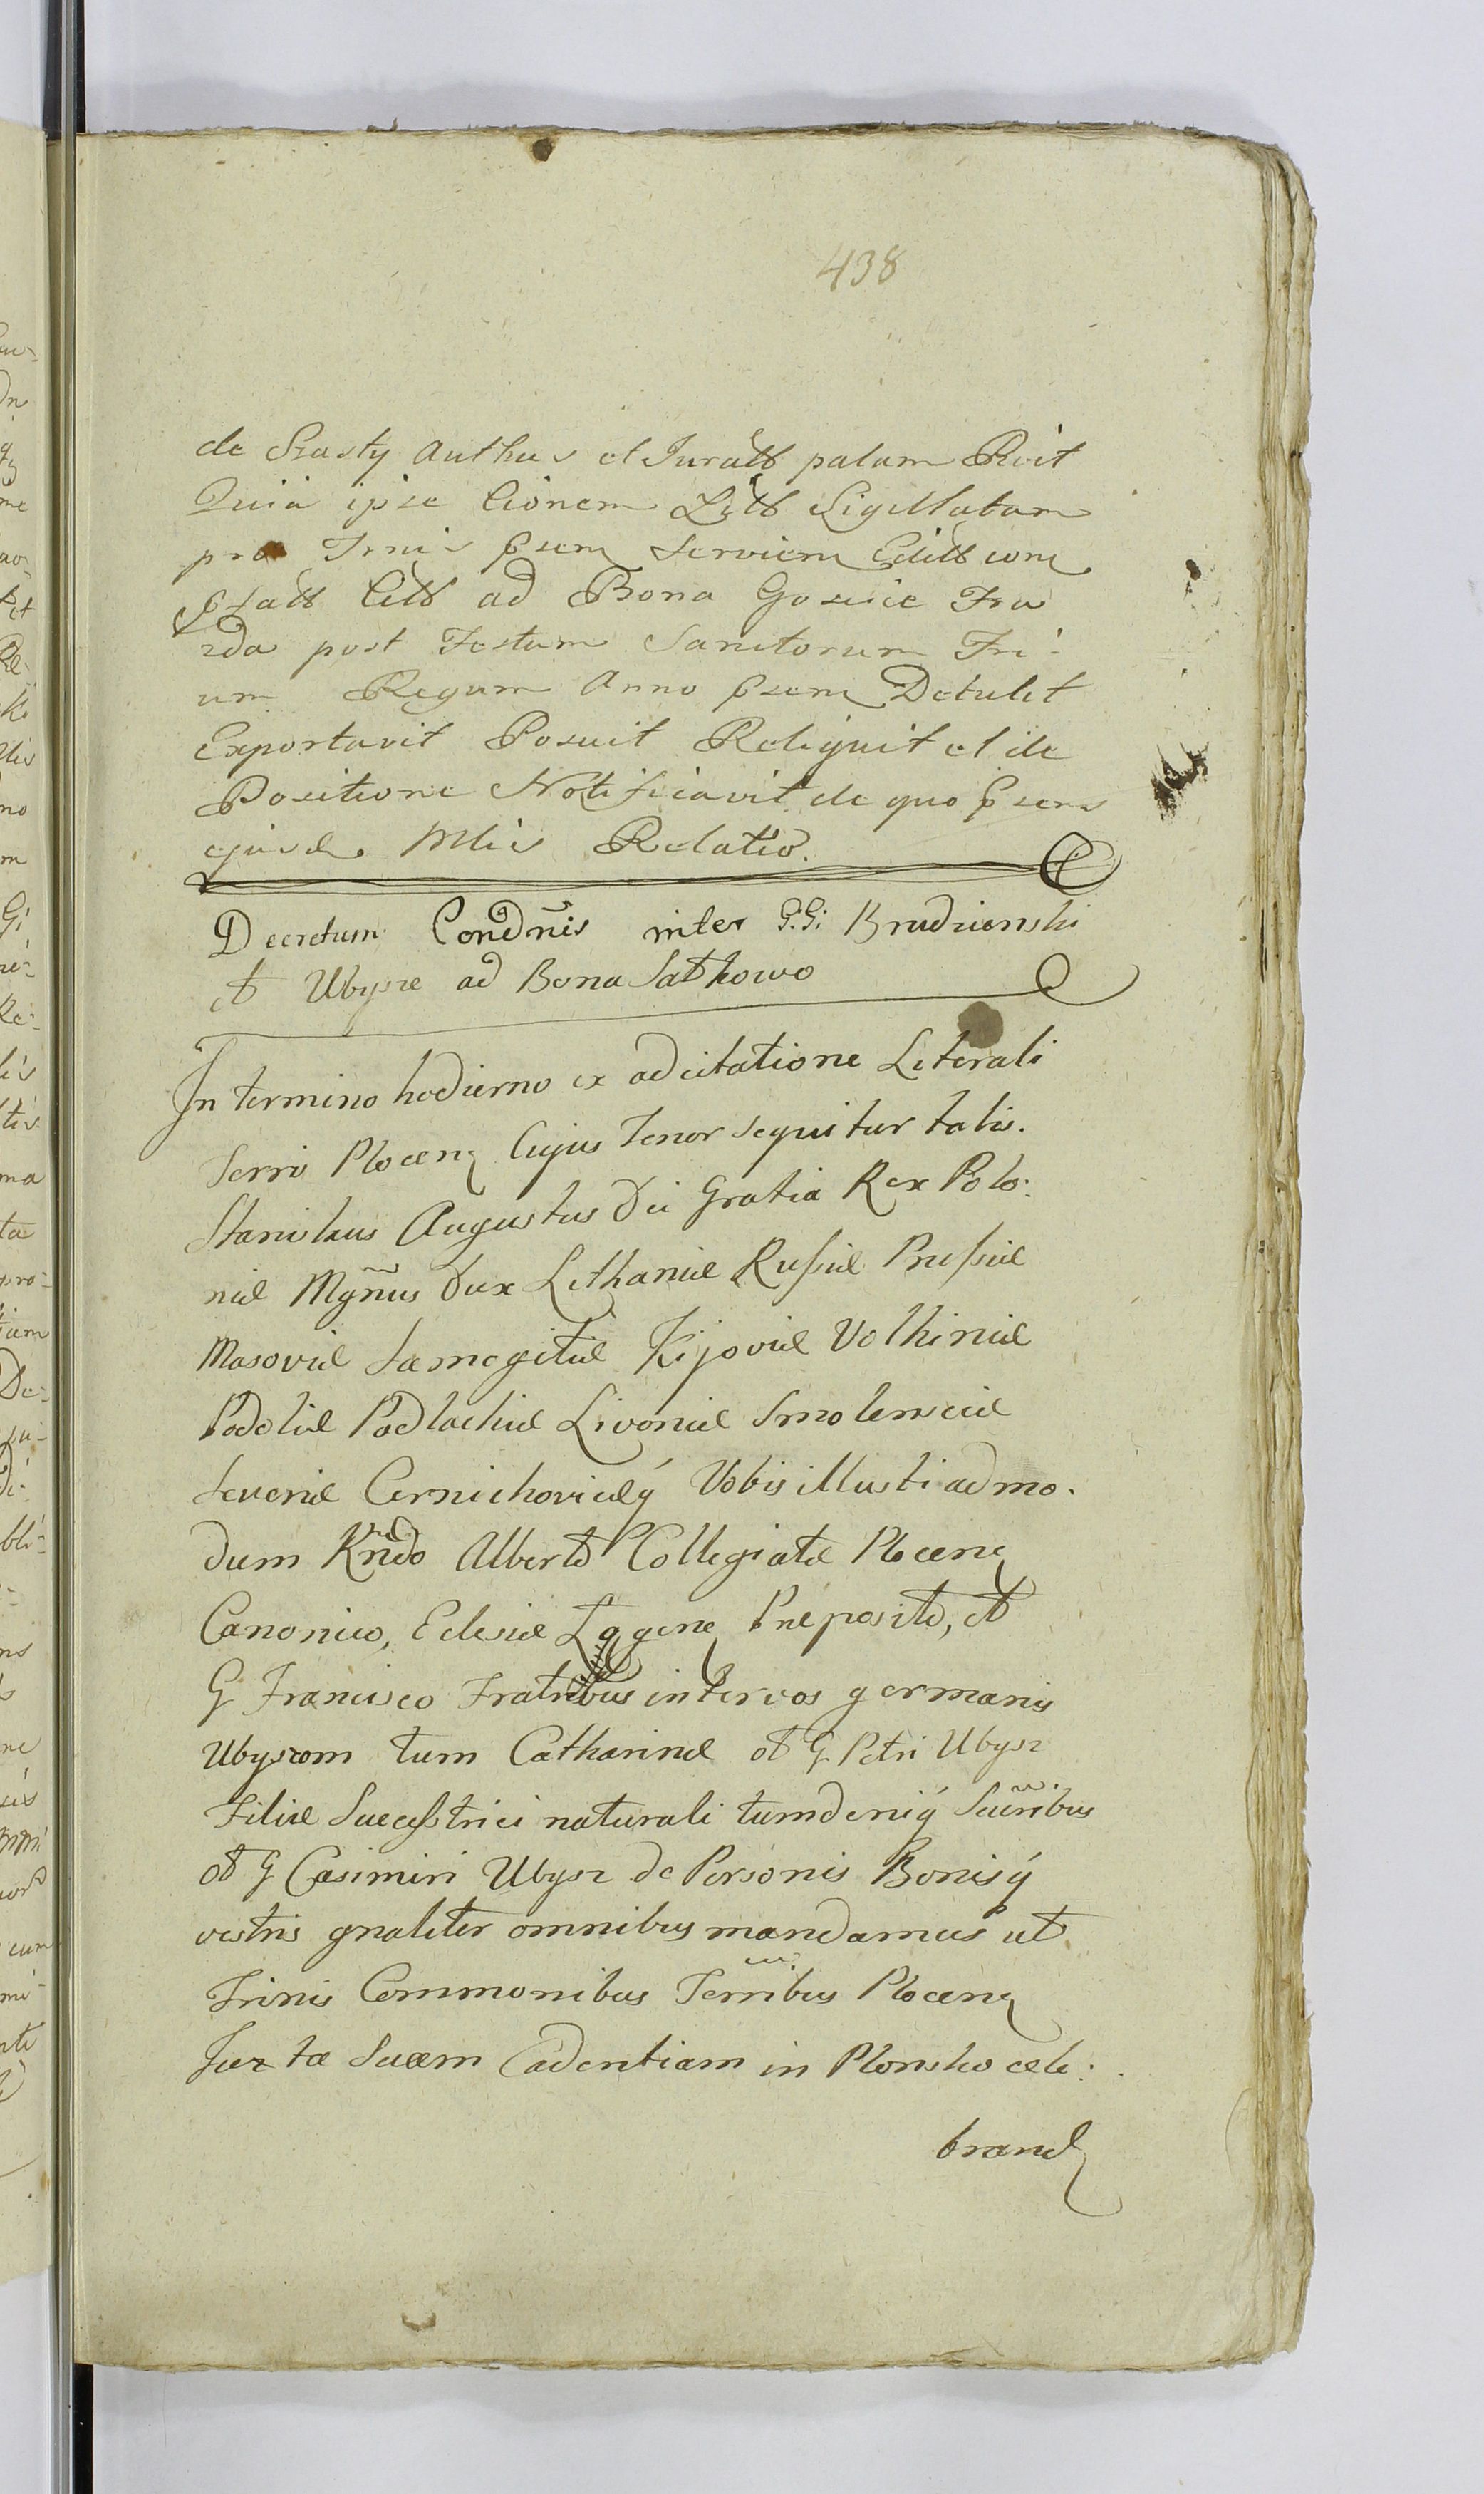 438
de Szasty Authus et Juratt palam Rvit
Quia ipse Cionem Litt Sigillatam
pro Trnis Psem Serviem Editt com
Psatt Citt ad Bona Gosicie Fra
2da post Festum Sanctorum Tri-
um Regum Anno Psem Detulit
Exportavit Posuit Reliquit et de
Positione Notificavit de quo Psens
ejusd Mlis Relatio.
Decretum Condnis inter G.G: Brudzienski
et Ubysze ad Bona Satkowo
In termino hodierno ex adcitatione Literali
Terris Plocen Cujus Tenor sequitur talis.
Stanislaus Augustus Dei Gratia Rex Polo:
niæ Mgnus Dux Lithaniæ Russiæ Prussiæ
Masoviæ Samogitiæ Kijoviæ Volhiniæ
Podoliæ Podlachiæ Livoniæ Smolensciæ
Severiæ Czernichoviæq Vobis illusti admo.
dum Rndo Alberto Collegiatæ Plocen
Canonico, Eclesiæ Præposito, et
G Francisco Fratribus intereos germanis
Ubyszom tum Catharinæ ot G Petri Ubysz
Filiæ Successtrici naturali tumdeniq Sucribus
ot G Casimiri Ubysz de Personis Bonisq
vestris gnaliter omnibus mandamus ut
Trinis Commonibus Terribus Plocen
Juxta Suam Cadentiam in Plonsko cele:
brand